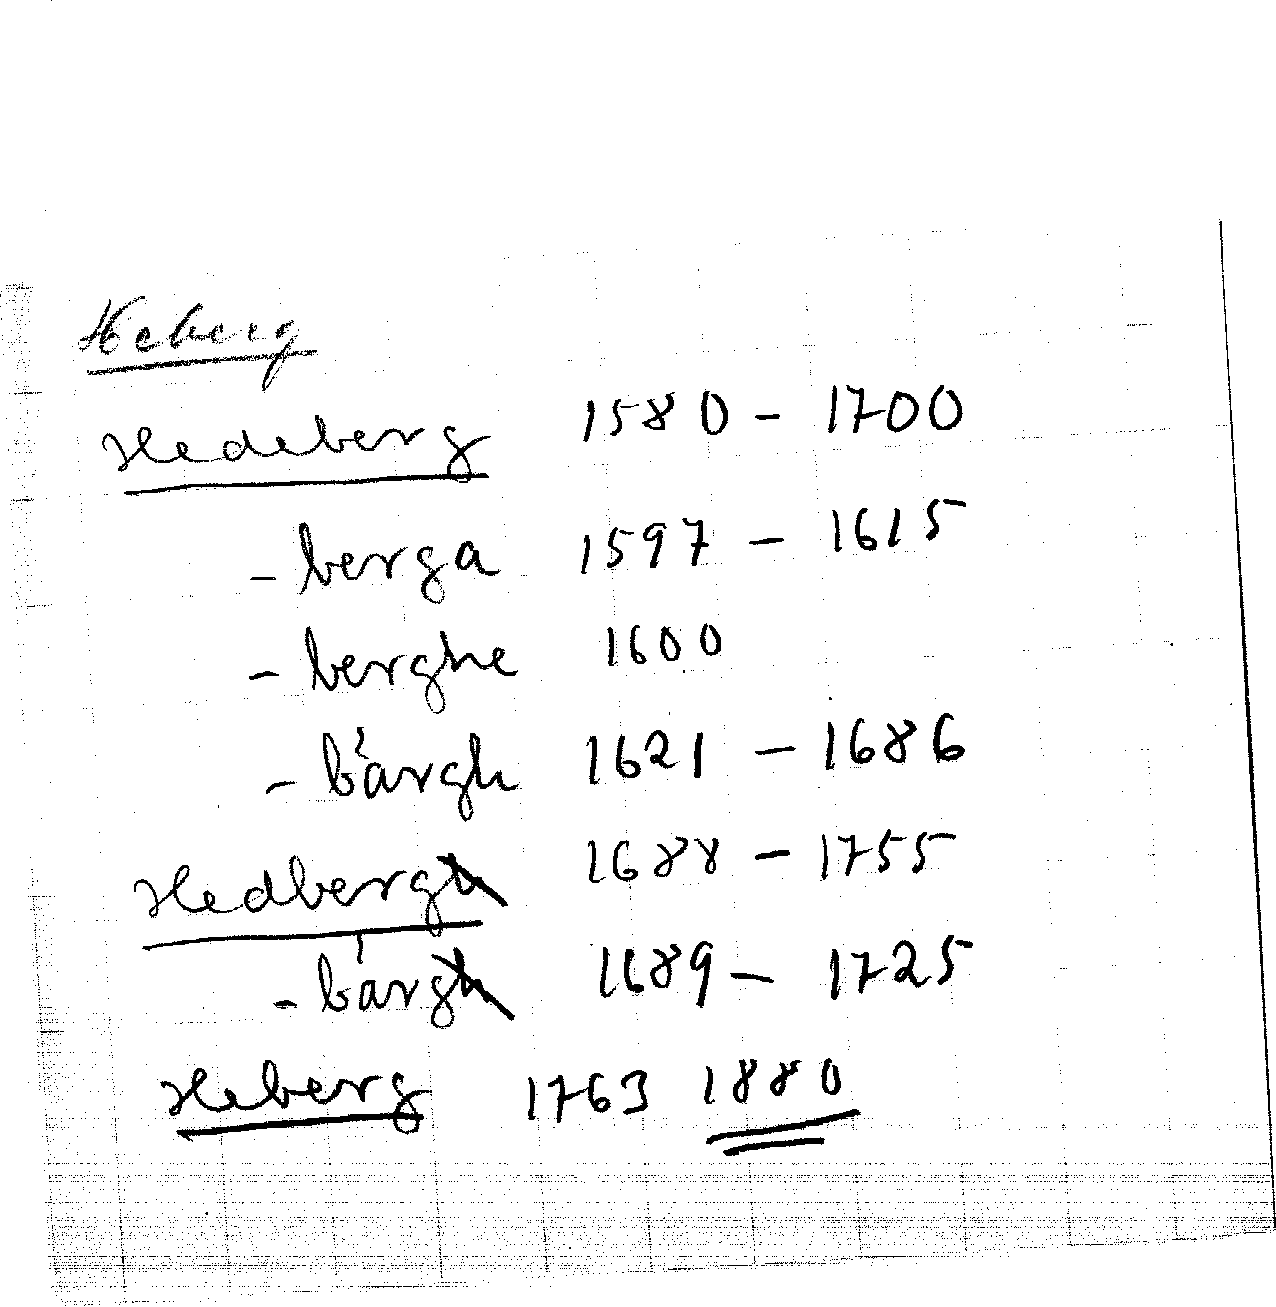 Heberg
Hedeberg 1580 - 1700
- berga 1597 - 1615
- berghe 1600
- bärgh 1621 - 1686
Hedbergh 1688 - 1755
- bärgh 1689 - 1725
Heberg 1763 1880